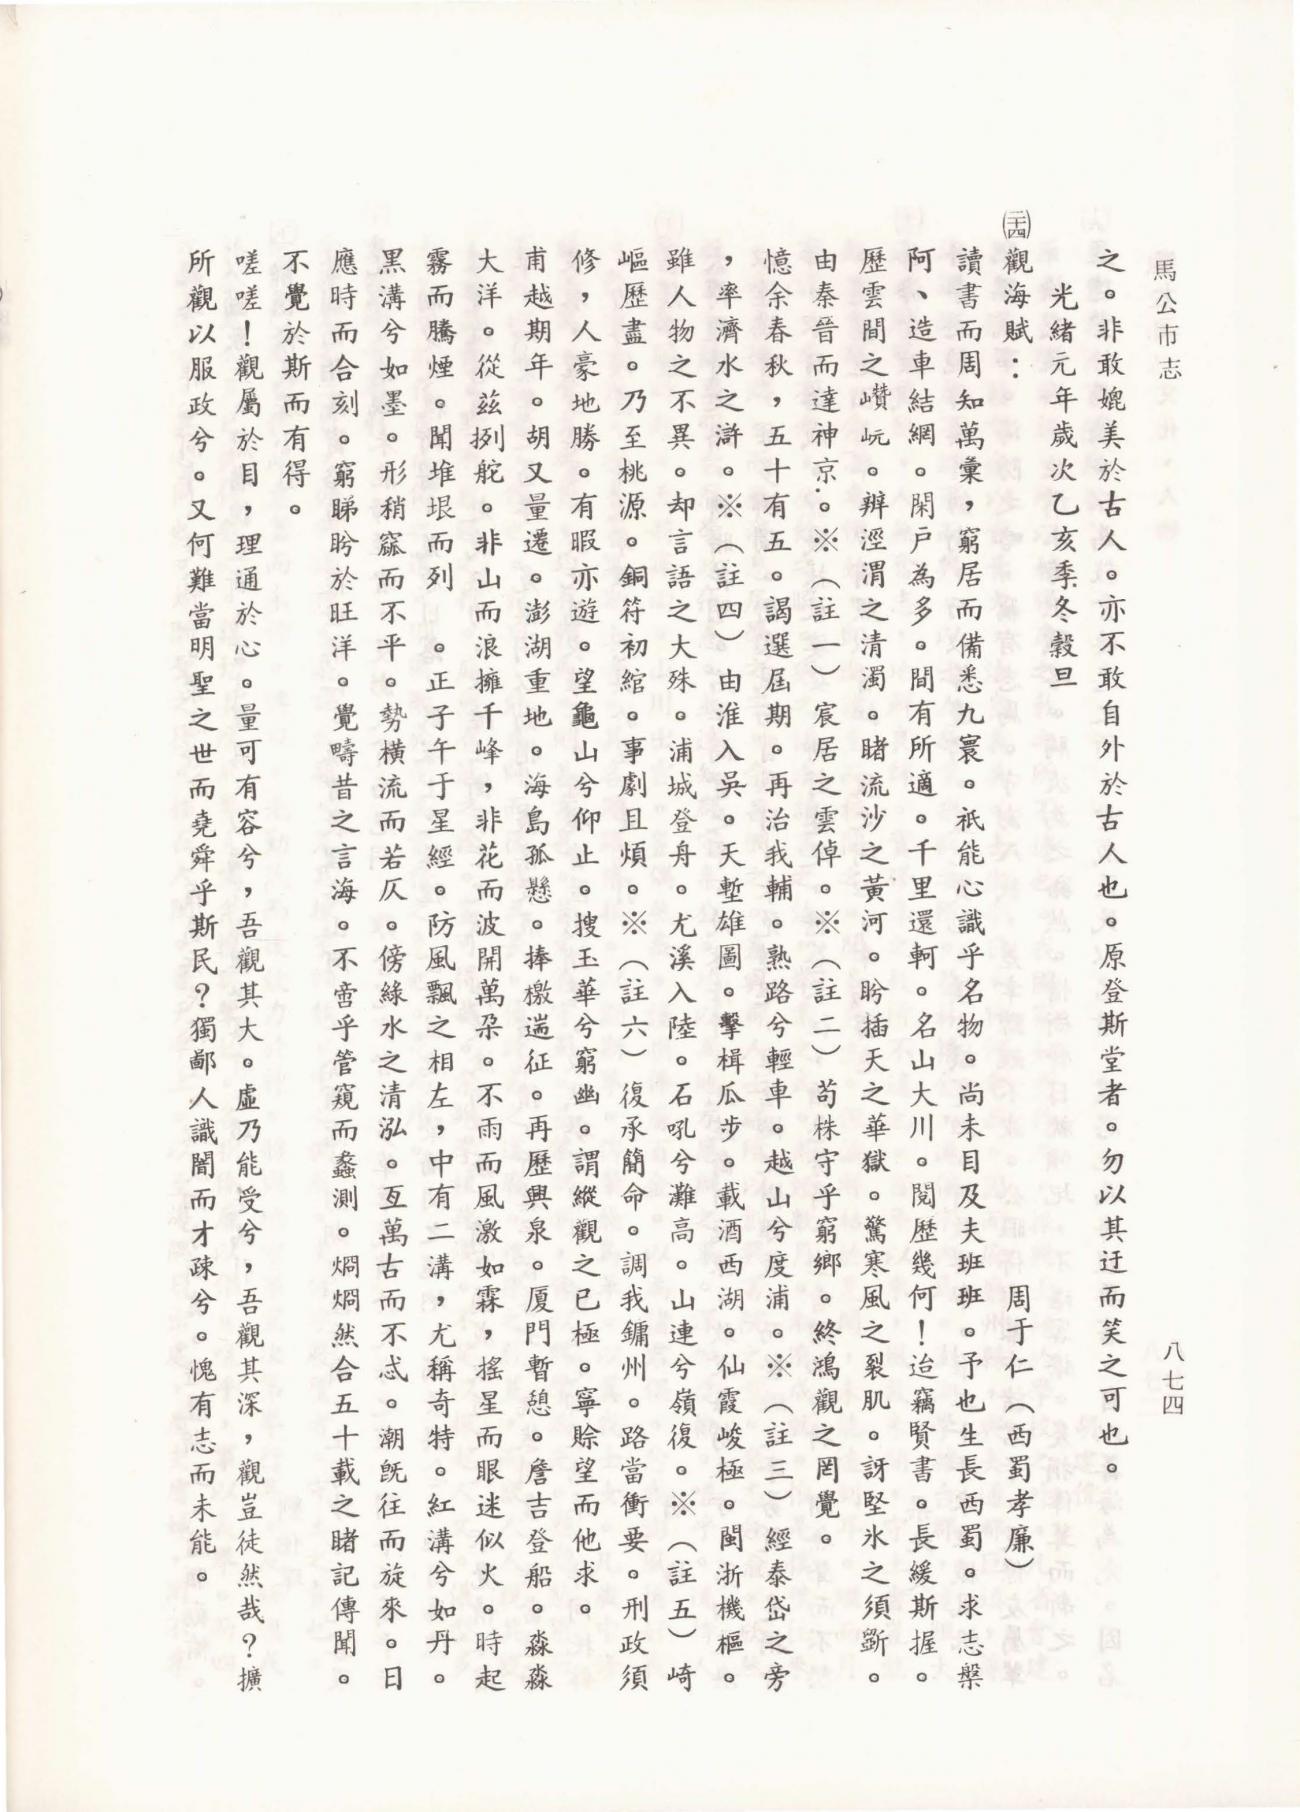 馬公市志
八七四
之。非敢媲美於古人。亦不敢自外於古人也。原登斯堂者。勿以其迂而笑之可也。
光緒元年歲次乙亥季冬穀旦
㈡㈣觀海賦： 周于仁（西蜀孝廉）
讀書而周知萬彙，窮居而備悉九寰。祇能心識乎名物。尚未目及夫班班。予也生長西蜀。求志槃
阿、造車結網。閑戶為多。間有所適。千里還軻。名山大川。閱歷幾何！迨竊賢書。長緩斯握。
歷雲間之巑岏。辨涇渭之清濁。睹流沙之黃河。盻插天之華獄。驚寒風之裂肌。訝堅氷之須斵。
由秦晉而達神京。※（註一）宸居之雲倬。※（註二）苟株守乎窮鄉。終鴻觀之罔覺。
憶余春秋，五十有五。謁選屆期。再治我輔。熟路兮輕車。越山兮度浦。※（註三）經泰岱之旁
，率濟水之滸。※（註四）由淮入吳。天塹雄圖。擊楫瓜步。載酒西湖。仙霞峻極。閩浙機樞。
雖人物之不異。却言語之大殊。浦城登舟。尤溪入陸。石吼兮灘高。山連兮嶺復。※（註五）崎
嶇歷盡。乃至桃源。銅符初綰。事劇且煩。※（註六）復承簡命。調我鏞州。路當衝要。刑政須
修，人豪地勝。有暇亦遊。望龜山兮仰止。搜玉華兮窮幽。謂縱觀之已極。寧賒望而他求。
甫越期年。胡又量遷。澎湖重地。海島孤懸。捧檄遄征。再歷興泉。厦門暫憩。詹吉登船。淼淼
大洋。從茲捌舵。非山而浪擁千峰，非花而波開萬朶。不雨而風激如霖，搖星而眼迷似火。時起
霧而騰煙。聞堆垠而列　。正子午于星經。防風飄之相左，中有二溝，尤稱奇特。紅溝兮如丹。
黑溝兮如墨。形稍窳而不平。勢橫流而若仄。傍綠水之清泓。亙萬古而不忒。潮旣往而旋來。日
應時而合刻。窮睇盻於旺洋。覺疇昔之言海。不啻乎管窺而蠡測。烱烱然合五十載之睹記傳聞。
不覺於斯而有得。
嗟嗟！觀屬於目，理通於心。量可有容兮，吾觀其大。虛乃能受兮，吾觀其深，觀豈徒然哉？擴
所觀以服政兮。又何難當明聖之世而堯舜乎斯民？獨鄙人識闇而才疎兮。愧有志而未能。